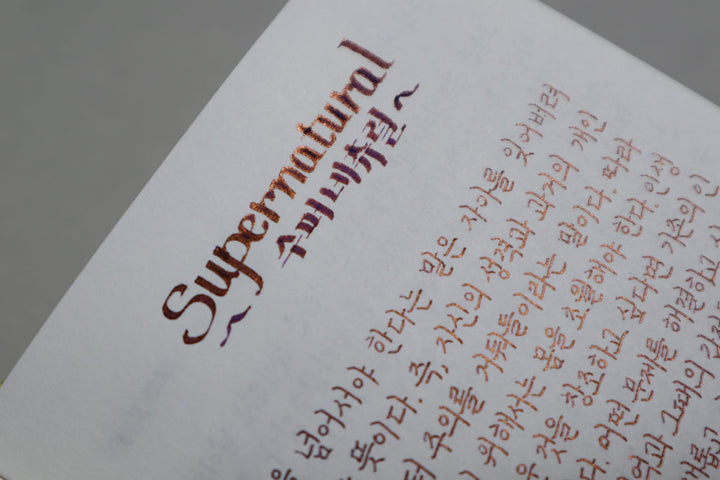 Supernatural
~수퍼내츄럴~
넘어서야 한다는 말은 자아를 잊어버려
뜻이다. 즉, 자신의 성격과 과거의 개인
주위를 거둬들이라는 말이다. 따라
위해서는 몸을 초월해야 한다. 인생
것을 창조하고 싶다면 기존의 인
어떤 문제를 해결하고
그때의